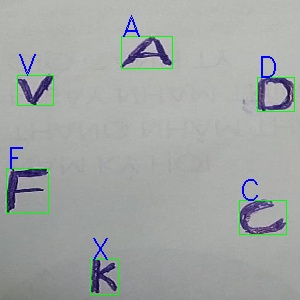 A
A
V
V
D
D
F
F
C
C
X
K